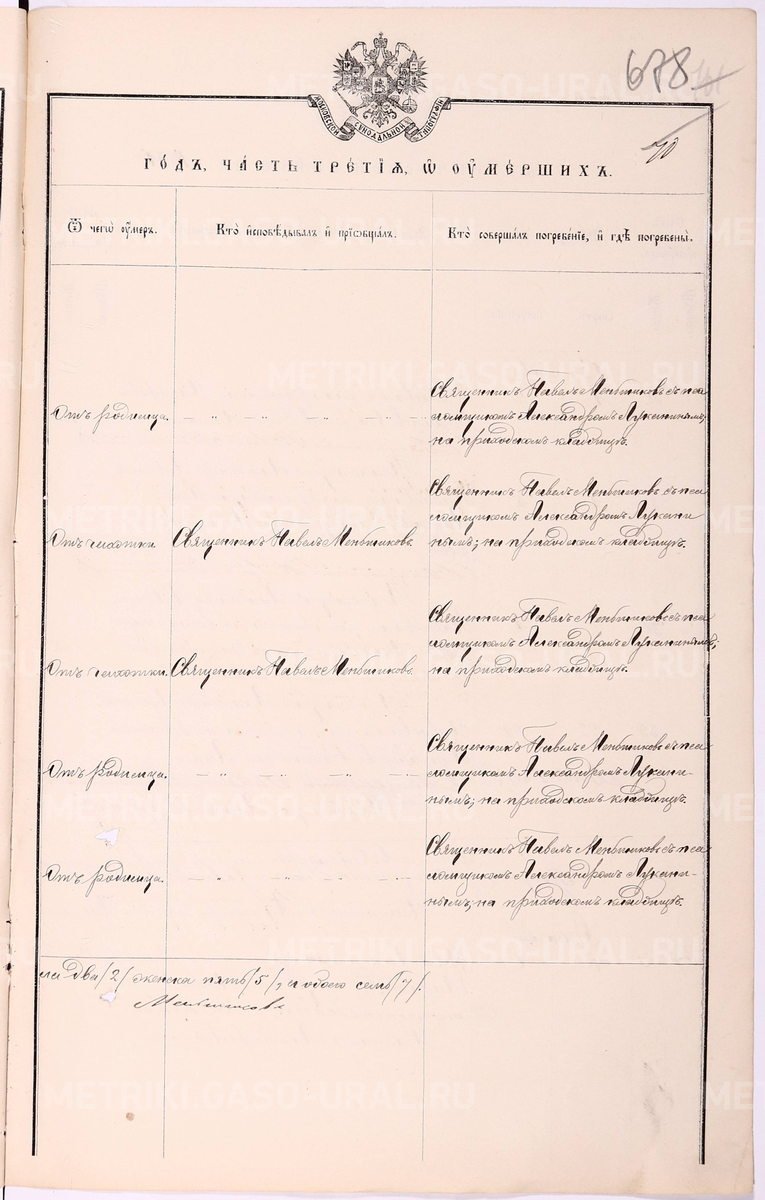 678
МОСКОВСКОЙ СѴНОДАЛЬНОЙ ТИПОГРАФІИ
70
ГО́ДЪ, ЧА́СТЬ ТРЕ́ТІѦ, Ѡ҆ ОУ҆МЕ́РШИХЪ.
Ѿ чегѡ̀ оу҆́меръ.
Кто̀ и҆сповѣ́дывалъ и҆ прїѡбща́лъ.
Кто̀ соверша́лъ погребе́нїе, и҆ гдѣ̀ погребены̀.
Отъ родимца.
Священникъ Павелъ Меньшиковъ съ пса
ломщикомъ Александромъ Лукининымъ;
на приходскомъ кладбищѣ.
Отъ чахотки.
Священникъ Павелъ Меньшиковъ.
Священникъ Павелъ Меньшиковъ съ пса
ломщикомъ Александромъ Лукини
нымъ; на приходскомъ кладбищѣ.
Отъ чахотки.
Священникъ Павелъ Меньшиковъ.
Священникъ Павелъ Меньшиковъ съ пса
ломщикомъ Александромъ Лукининымъ;
на приходскомъ кладбищѣ.
Отъ родимца.
Священникъ Павелъ Меньшиковъ съ пса
ломщикомъ Александромъ Лукини-
нымъ; на приходскомъ кладбищѣ.
Отъ родимца.
Священникъ Павелъ Меньшиковъ съ пса
ломщикомъ Александромъ Лукини-
нымъ; на приходскомъ кладбищѣ.
ла два /2/ женска пять /5/, а обоего семь /7/.
Меньшиковъ
METRIKI.GASO-URAL.RU